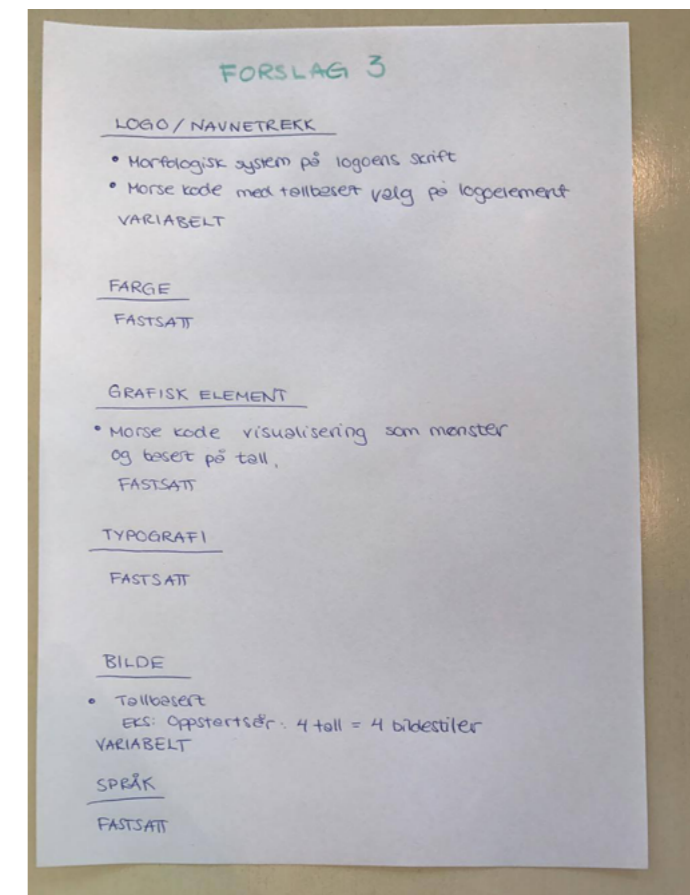 FORSLAG 3
LOGO / NAVNETREKK
• Morfologisk system på logoens skrift
• Morse kode med tallbasert valg på logoelement
VARIABELT
FARGE
FASTSATT
GRAFISK ELEMENT
• Morse kode visualisering som mønster
og basert på tall.
FASTSATT
TYPOGRAFI
FASTSATT
BILDE
• Tallbasert
EKS: Oppstartsår: 4 tall = 4 bildestiler
VARIABELT
SPRÅK
FASTSATT